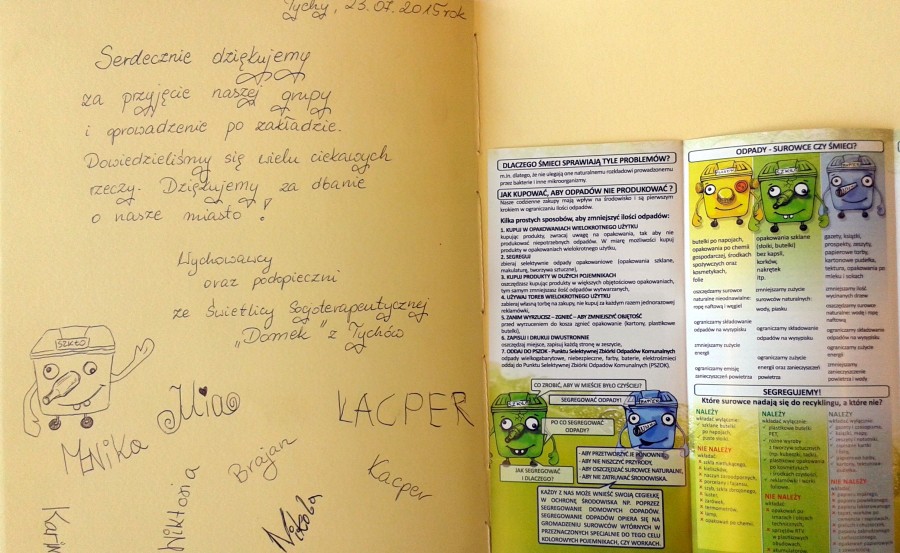 Tychy, 23.07.2015 rok
Serdecznie dziękujemy
za przyjęcie naszej grupy
i oprowadzenie po zakładzie.
Dowiedzieliśmy się wielu ciekawych
rzeczy. Dziękujemy za dbanie
o nasze miasto!
Wychowawcy
oraz podopieczni
ze Świetlicy Socjoterapeutycznej
„Domek" z Tychów
SZKŁO
Mia
KACPER
Brajan
Kacper
Wiktoria
Nikola
DLACZEGO ŚMIECI SPRAWIAJĄ TYLE PROBLEMÓW?
m.in. dlatego, że nie ulegają one naturalnemu rozkładowi prowadzonemu
przez bakterie i inne mikroorganizmy.
JAK KUPOWAĆ, ABY ODPADÓW NIE PRODUKOWAĆ ?
Nasze codzienne zakupy mają wpływ na środowisko i są pierwszym
krokiem w ograniczaniu ilości odpadów.
Kilka prostych sposobów, aby zmniejszyć ilości odpadów:
1. KUPUJ W OPAKOWANIACH WIELOKROTNEGO UŻYTKU
kupując produkty, zwracaj uwagę na opakowania, tak aby nie
produkować niepotrzebnych odpadów. W miarę możliwości kupuj
produkty w opakowaniach wielokrotnego użytku.
2. SEGREGUJ
zbieraj selektywnie odpady opakowaniowe (opakowania szklane,
makulaturę, tworzywa sztuczne),
3. KUPUJ PRODUKTY W DUŻYCH POJEMNIKACH
oszczędzasz kupując produkty w większych objętościowo opakowaniach,
tym samym zmniejszasz ilość odpadów wytwarzanych,
4. UŻYWAJ TOREB WIELOKROTNEGO UŻYTKU
zabieraj własną torbę na zakupy, nie kupuj za każdym razem jednorazowej
reklamówki,
5. ZANIM WYRZUCISZ – ZGNIEĆ – ABY ZMNIEJSZYĆ OBJĘTOŚĆ
przed wyrzuceniem do kosza zgnieć opakowanie (kartony, plastikowe
butelki),
6. ZAPISUJ I DRUKUJ DWUSTRONNIE
oszczędzaj miejsce, zapisuj każdą stronę w zeszycie,
7. ODDAJ DO PSZOK - Punktu Selektywnej Zbiórki Odpadów Komunalnych
odpady wielkogabarytowe, niebezpieczne, farby, baterie, elektrośmieci
oddaj do Punktu Selektywnej Zbiórki Odpadów Komunalnych (PSZOK).
CO ZROBIĆ, ABY W MIEŚCIE BYŁO CZYŚCIEJ?
SEGREGOWAĆ ODPADY!
PO CO SEGREGOWAĆ
ODPADY?
- ABY PRZETWORZYĆ JE PONOWNIE,
- ABY NIE NISZCZYĆ PRZYRODY,
- ABY OSZCZĘDZAĆ SUROWCE NATURALNE,
- ABY NIE ZATRUWAĆ ŚRODOWISKA.
JAK SEGREGOWAĆ
I DLACZEGO?
KAŻDY Z NAS MOŻE WNIEŚĆ SWOJĄ CEGIEŁKĘ
W OCHRONĘ ŚRODOWISKA NP. POPRZEZ
SEGREGOWANIE DOMOWYCH ODPADÓW.
SEGREGOWANIE ODPADÓW OPIERA SIĘ NA
GROMADZENIU SUROWCÓW WTÓRNYCH W
PRZEZNACZONYCH SPECJALNIE DO TEGO CELU
KOLOROWYCH POJEMNIKACH, CZY WORKACH.
ODPADY - SUROWCE CZY ŚMIECI?
butelki po napojach,
opakowania po chemii
gospodarczej, środkach
spożywczych oraz
kosmetykach,
folie
oszczędzamy surowce
naturalne nieodnawialne:
ropę naftową i węgiel
ograniczamy składowanie
odpadów na wysypisku
zmniejszamy zużycie
energii
ograniczamy emisję
zanieczyszczeń powietrza
opakowania szklane
(słoiki, butelki)
bez kapsli,
korków,
nakrętek
itp.
zmniejszamy zużycie
surowców naturalnych:
wody, piasku
ograniczamy składowanie
odpadów na wysypisku
ograniczamy zużycie
energii oraz zanieczyszczeń
powietrza
gazety, książki,
prospekty, zeszyty,
papierowe torby,
kartonowe pudełka,
tektura, opakowania po
mleku i sokach
zmniejszamy ilość
wycinanych drzew
oszczędzamy surowce
naturalne: wodę i ropę
naftową
ograniczamy składowanie
odpadów na wysypisku
zmniejszamy zużycie
energii
zmniejszamy
zanieczyszczenie
powietrza i wody
SEGREGUJEMY!
Które surowce nadają się do recyklingu, a które nie?
NALEŻY
wkładać wyłącznie:
szklane butelki
po napojach,
puste słoiki.
NIE NALEŻY
wkładać:
NALEŻY
wkładać wyłącznie:
plastikowe butelki
PET,
NIE NALEŻY
wkładać:
NALEŻY
wkładać wyłącznie:
NIE NALEŻY
wkładać: